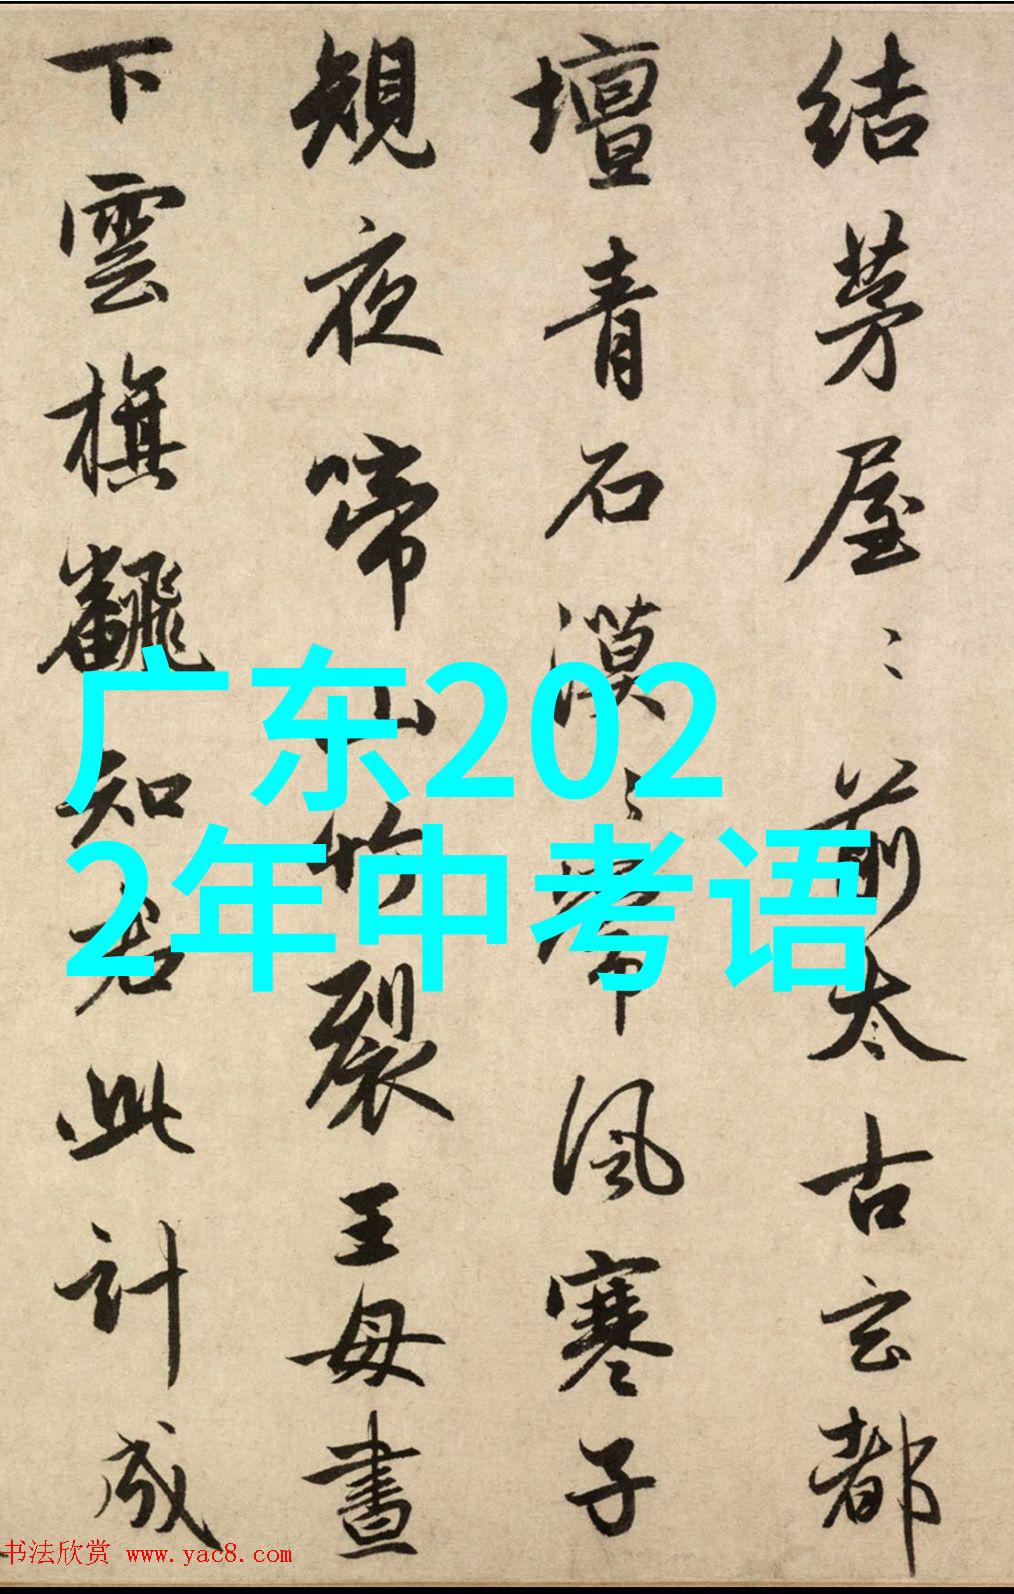 結茅屋〻前太古玄都
壇青石漠〻常風寒子
規夜啼山竹裂王母晝
下雲旗飜知君此計成
广东202
2年中考语
书法欣赏 www.yac8.com